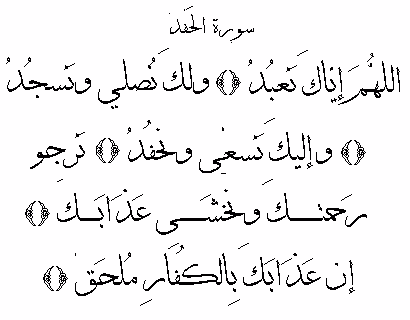 سورة الحفد
اللهُمَّ إِيَّاكَ نَعْبُدُ ۝ ولَكَ نُصَلي ونَسجُدُ
۝ وإليكَ نَسعَى ونَحْفُدُ ۝ نَرجو
رَحمتـــكَ ونَخْشَـــى عَذَابَـــكَ ۝
إن عَذَابَكَ بِالكُفَّارِ مُلحَق ۝